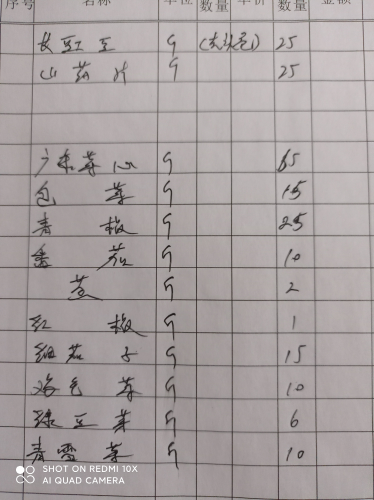 序号 名称 单位 数量 单价 数量 金额
长豇豆 斤 25
山药片 斤 25
广东菜心 斤 65
包菜 斤 15
青椒 斤 25
番茄 斤 10
葱 斤 2
红椒 斤 1
细茄子 斤 15
鸡毛菜 斤 10
绿豆芽 斤 6
青雪菜 斤 10
SHOT ON REDMI 10X
AI QUAD CAMERA